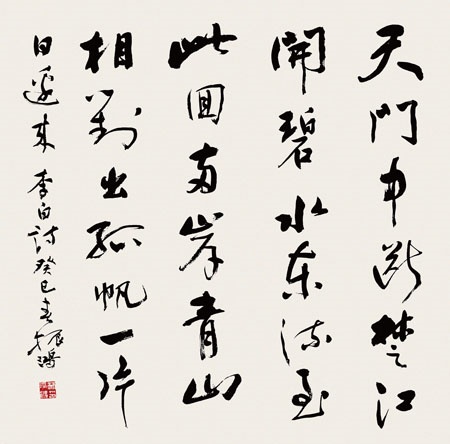 天門中斷楚江
開碧水東流至
此回兩岸青山
相對出孤帆一片
日邊來 李白詩癸巳春